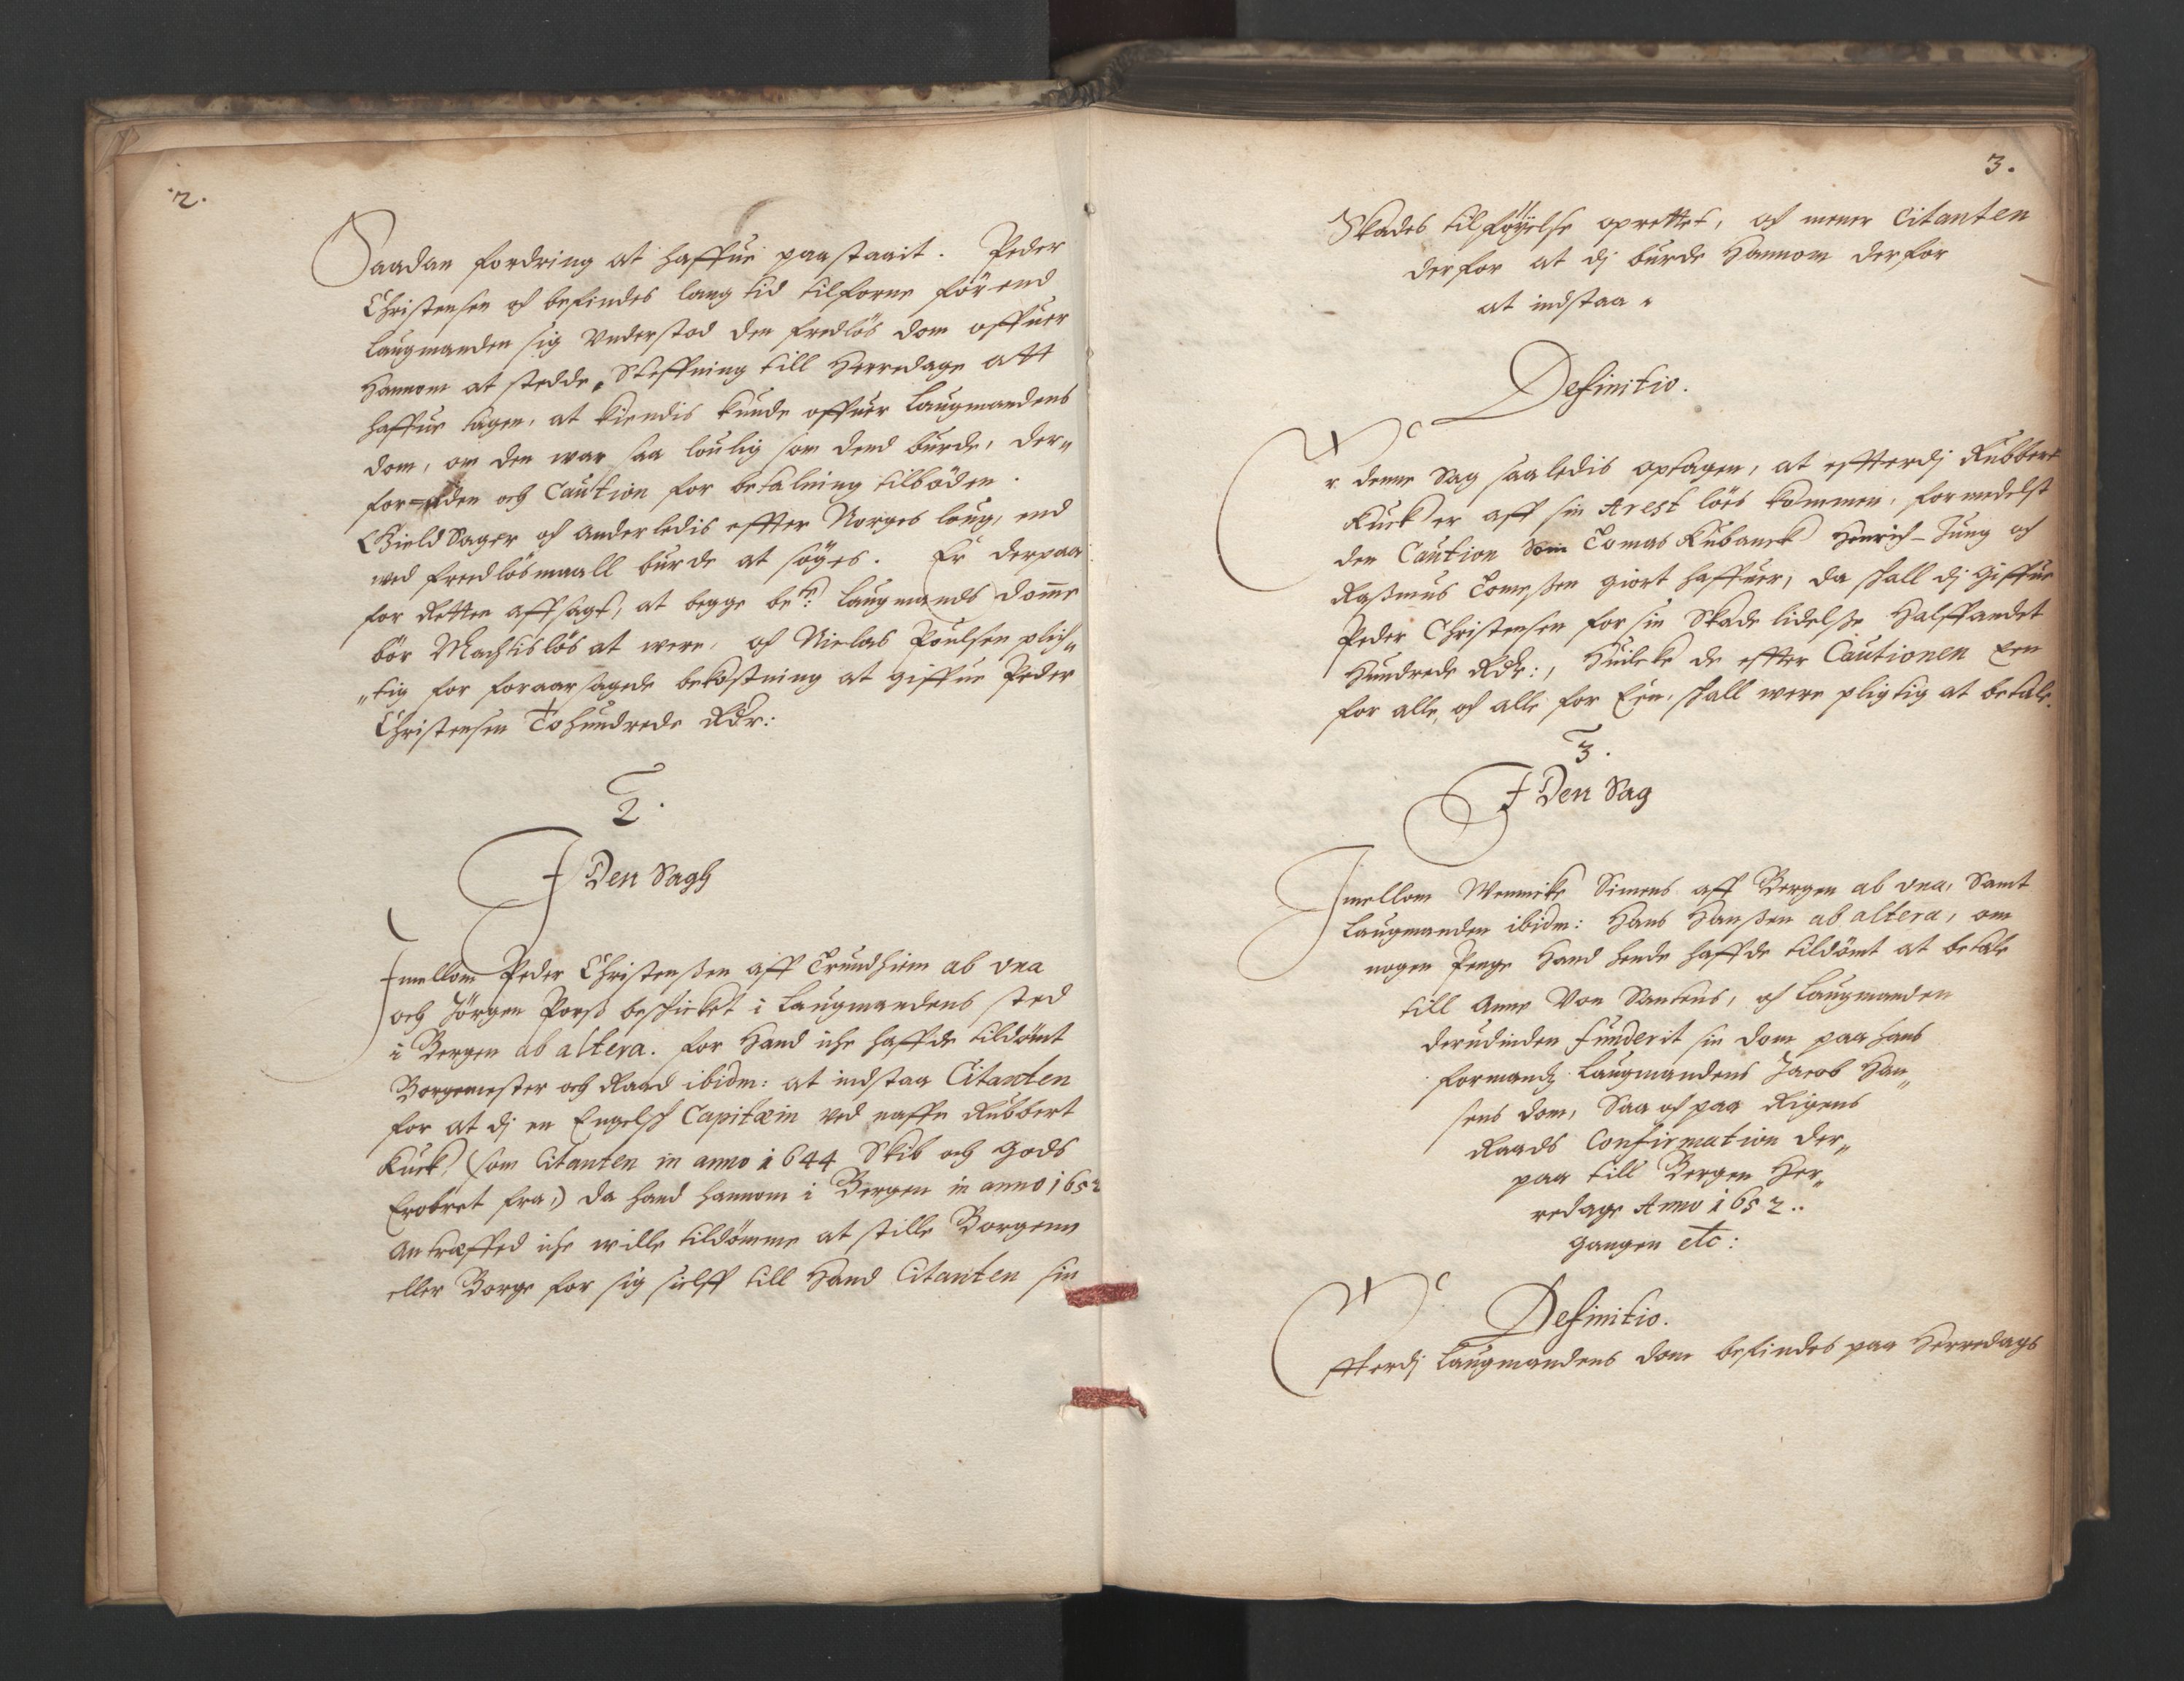 2.
Saadan fordring at haffue paastaait. Peder
Christensen og befindes lang tid tilforne för end
Laugmanden sig Understod den fredlös dom offuer
Hannom at stedde, Steffning till Herredage att
haffue tagen, at kiendis kunde offuer Laugmandens
dom, om den war saa loulig som dend burde, der„
foruden och Caution for betalning tilböden.
Gield Sager og anderledis effter Norges loug, end
wed fredlösmaall burde at söges. Er derpaa
for Retten affsagt, at begge bete: Laugmands Domme
bör Machtislös at were, og Nielas Poulsen plich„
„tig for foraarsagede bekostning at giffue Peder
Christensen Tohundrede Rdr:
2.
I Den Sagh
Imellom Peder Christenßen aff Trundhiem ab una
och Jörgen Porß beschicket i Laugmandens sted
i Bergen ab altera. for Hand iche haffde tildömt
Borgemester och Raad ibidm: at indstaa Citanten
for at dj en Engelsch Capitæin ved naffn Rubbert
Kuck, (som Citanten in anno 1644 Skib och Gods
Erobret fra,) da hand hannom i Bergen in anno 1652
Antræffed iche wille tildömme at stille Borgenn
eller Borge for sig sielff till Hand Citanten sin
3.
Skades tilföyelse oprettet, og mener Citanten
derfor at dj burde Hannom derfor
at indstaa.
Definitio.
Er denne Sag saaledis optagen, at effterdj Rubbert
Kuck er aff sin Arest löes kommen, formedelst
den Caution Som Tomas Kubanck Henrich Jung og
Raßmus Tomeßen giort haffuer, da schall dj giffue
Peder Christensen for sin Skade lidelße Halffandet
Hundrede Rdr:, Huilcke de effter Cautionen Een
for alle, og alle for Een, schall were pligtig at betale.
3.
I Den Sag
Imellom Wennicke Simens aff Bergen ab una, Samt
Laugmanden ibidm: Hans Hanßen ab altera, om
nogen Penge Hand hende haffde tildömt at betale
till Anne Von Santens, og Laugmanden
derudinden funderit sin dom paa hans
formandz Laugmandens Jacob Han„
sens dom, Saa og paa Rigens
Raads Confirmation der„
paa till Bergen Her„
redage Anno 1652..
gangen etc:
Definitio.
Effterdj Laugmandens dom befindes paa Herredags